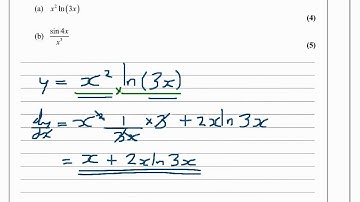 (a) x² ln(3x)
(4)
(b) sin 4x / x³
(5)
y = x² × ln(3x)
dy/dx = x² 1/3x × 3 + 2x ln 3x
= x + 2x ln 3x